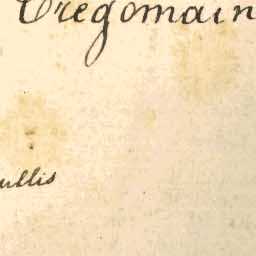 Tregomain
ullis